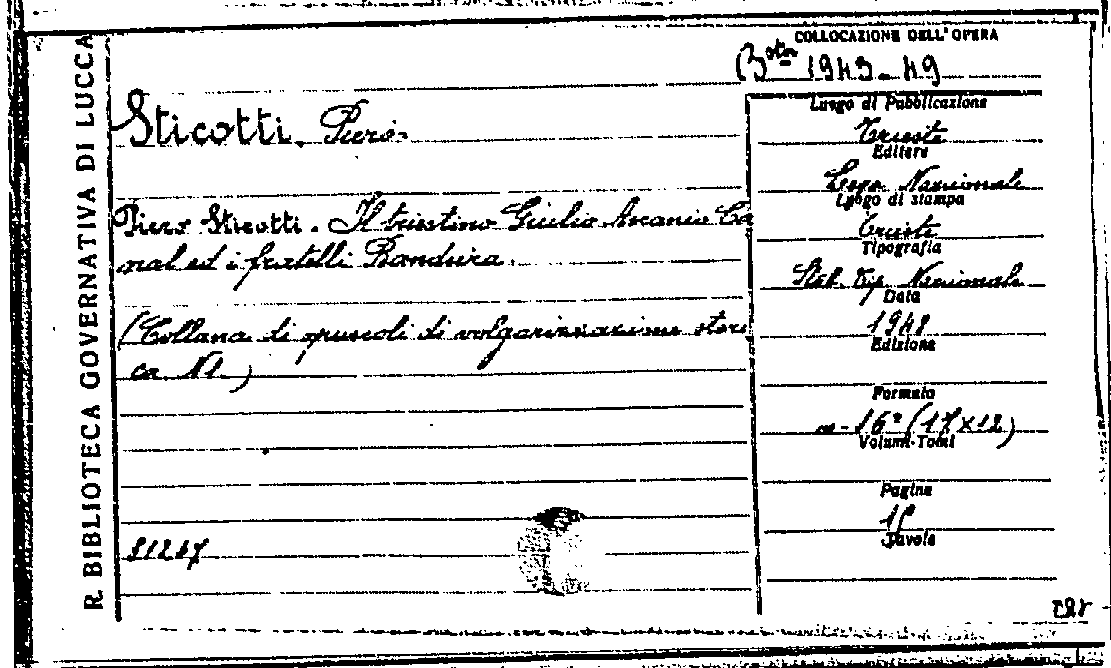 R. BIBLIOTECA GOVERNATIVA DI LUCCA
COLLOCAZIONE DELL'OPERA
1943-49
Sticotti, Piero
Piero Sticotti. Il triestino Giulio Ascanio Co
ed i fratelli Bandiera.
(Collana di opuscoli di volgarizzazione stori
ca N1.)
81267
Luogo di Pubblicazione
Trieste
Editore
Lega Nazionale
Luogo di stampa
Trieste
Tipografia
Stab. Tip. Nazionale
Data
1948
Edizione
Formato
16° (17x12)
Volumi-Tomi
Pagine
Tavole